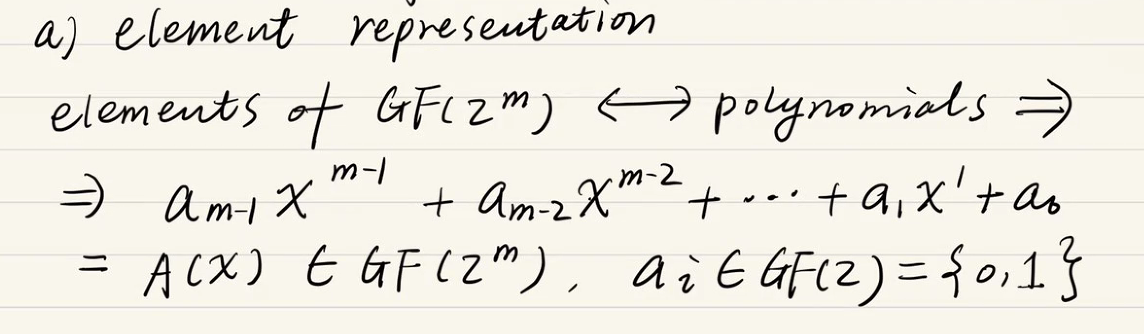 a) element representation
elements of GF(2^m) ⟷ polynomials ⇒
⇒ a_{m-1} x^{m-1} + a_{m-2} x^{m-2} + ··· + a_1 x^1 + a_0
= A(x) ∈ GF(2^m), a_i ∈ GF(2) = {0,1}